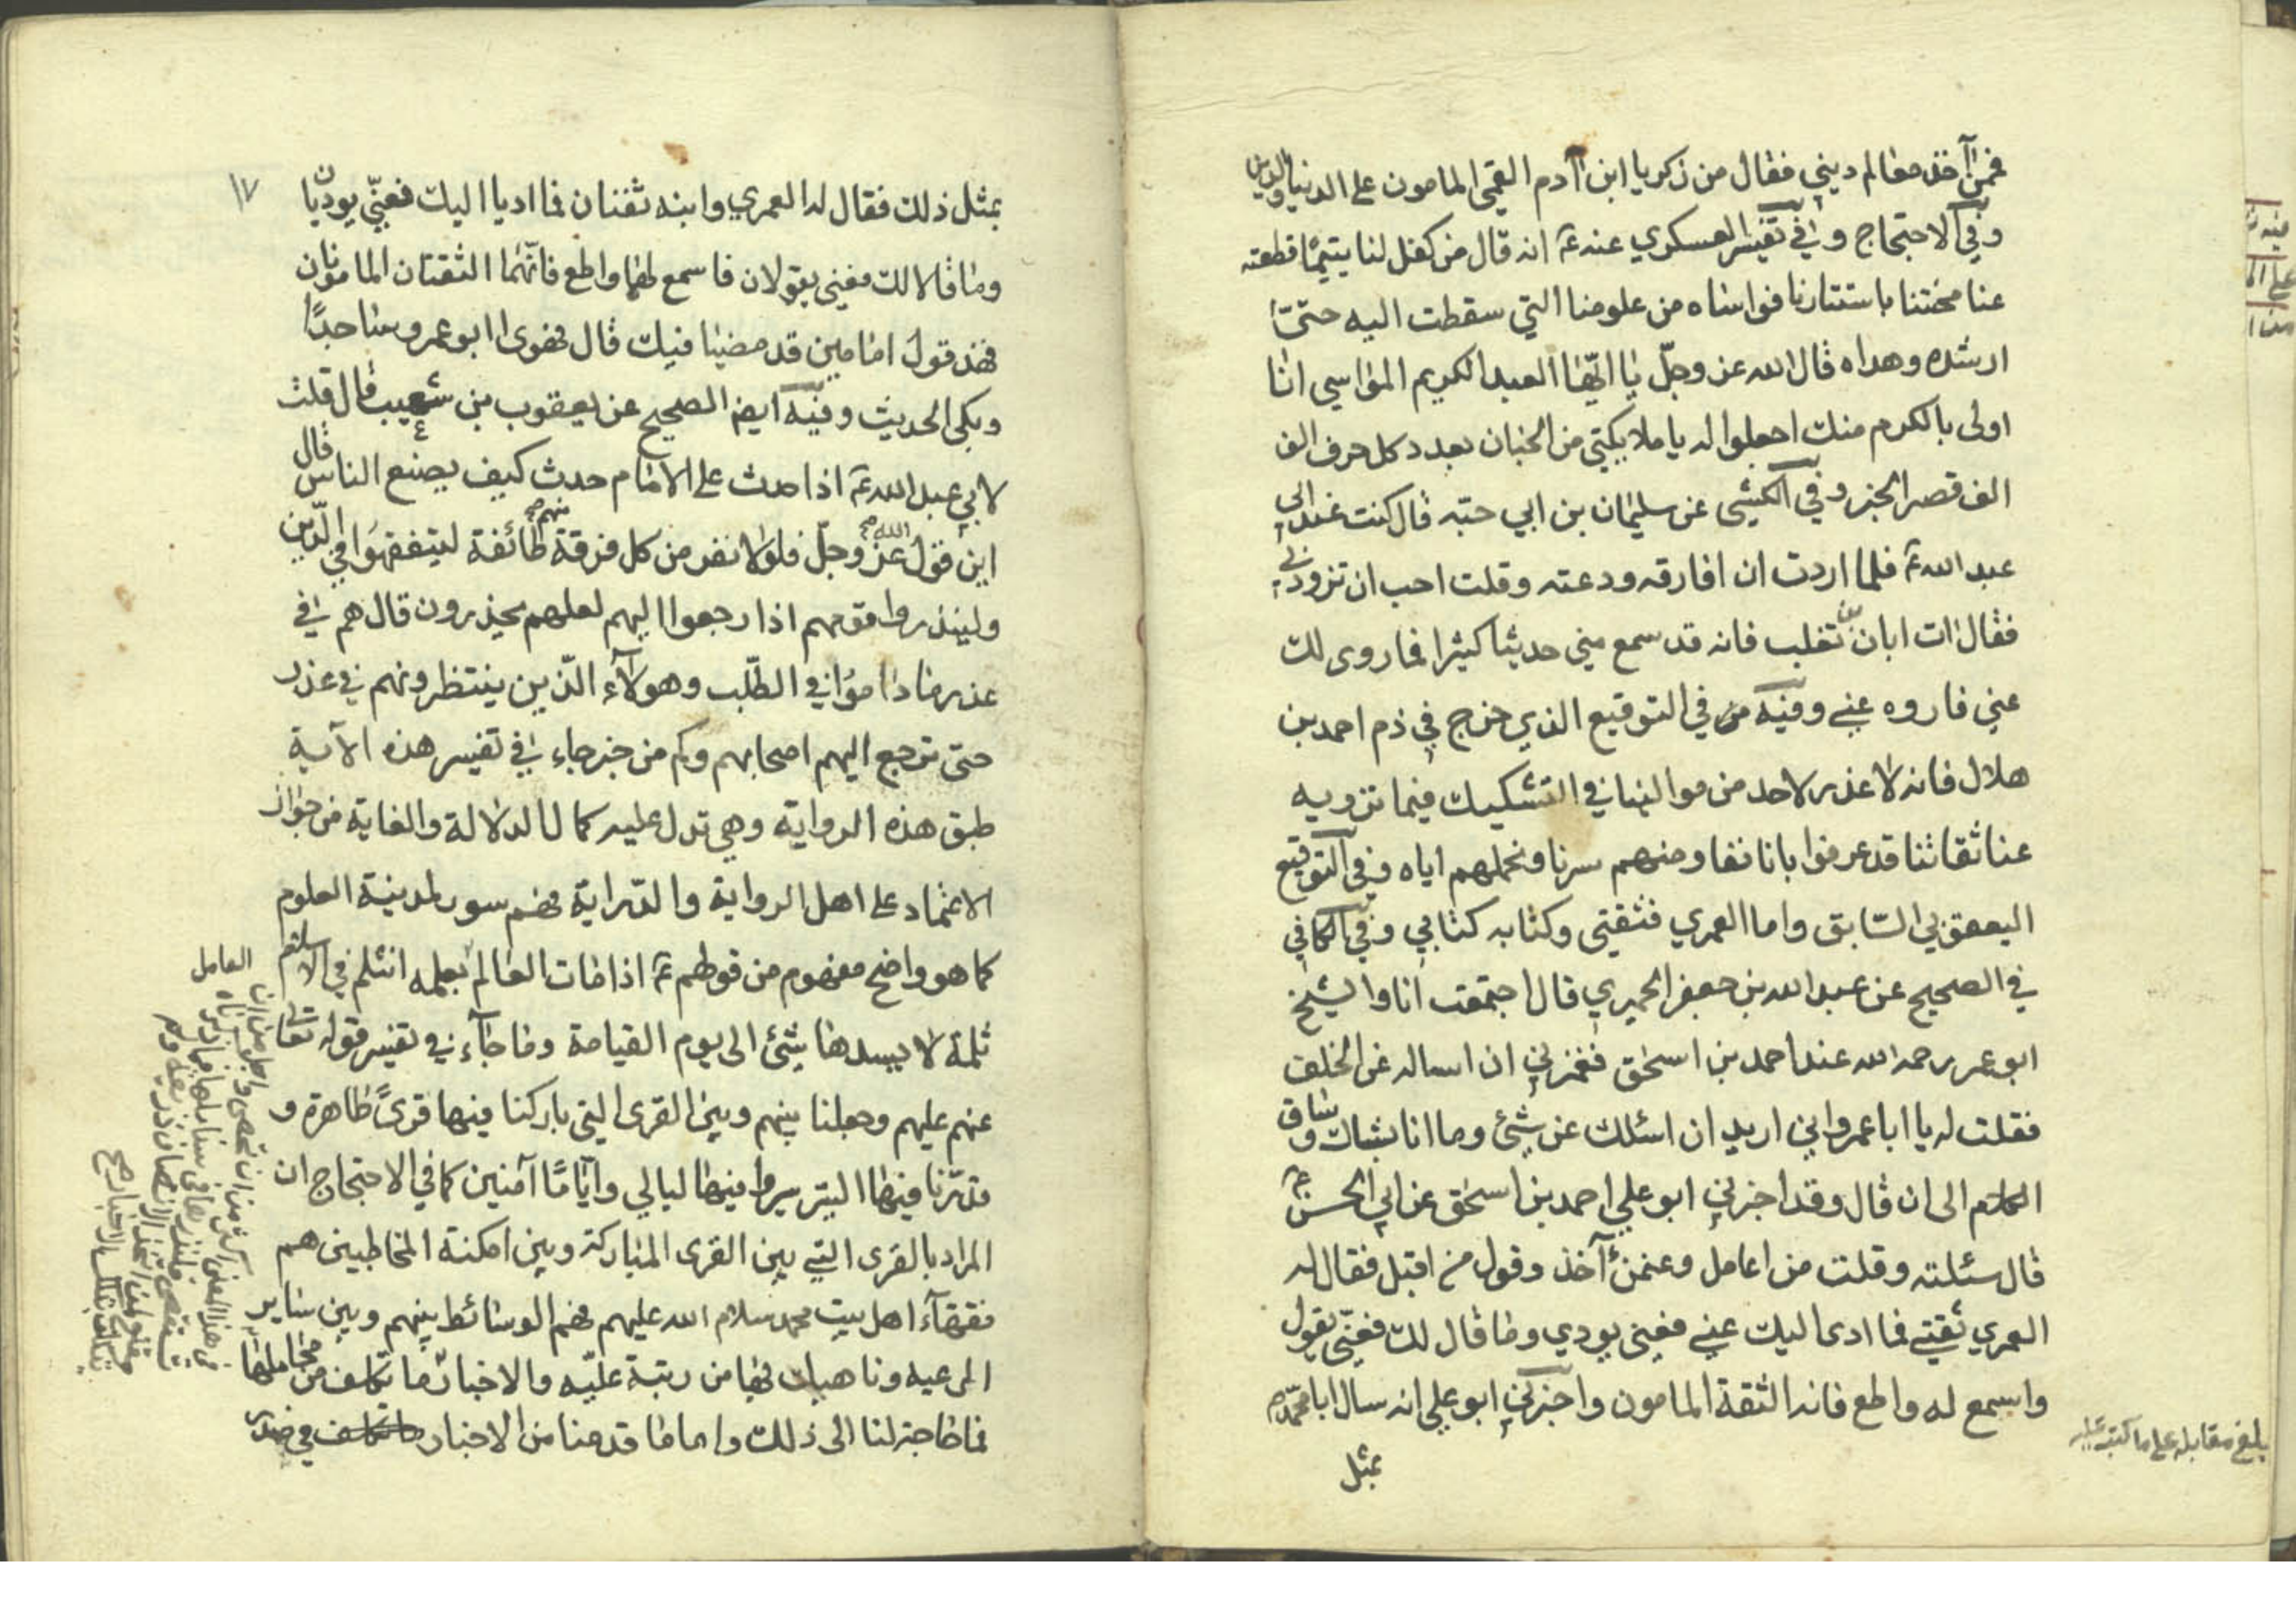 فممن آخذ معالم ديني فقال من زكريا ابن آدم القمي المامون على الدنيا والدين
وفي الاحتجاج وفي تفسير العسكري عنه ع انه قال من كفل لنا يتيمًا قطعته
عنا محنتنا باستتارنا فواساه من علومنا التي سقطت اليه حتّى
ارشده وهداه قال الله عز وجلّ يا ايّها العبد الكريم المواسي انا
اولى بالكرم منك اجعلوا له يا ملايكتي من الجنان بعدد كل حرف الف
الف قصر الخبر وفي الكشي عن سليمان بن ابي حبّه قال كنت عند ابي
عبد الله ع فلما اردت ان افارقه ودعته وقلت احب ان تزودني
فقال ائت ابان بن تغلب فانه قد سمع مني حديثا كثيرا فما روى لك
عني فاروه عني وفيه في التوقيع الذي خرج في ذم احمد بن
هلال فانه لا عذر لاحد من موالينا في التشكيك فيما ترويه
عنا ثقاتنا قد عرفوا بانا نفاوضهم سرنا ونحملهم اياه وفي التوقيع
اليعقوبي السّابق واما العمري فثقتي وكتابه كتابي وفي الكافي
في الصحيح عن عبد الله بن جعفر الحميري قال اجتمعت انا والشيخ
ابو عمر رحمه الله عند احمد بن اسحٰق فغمزني ان اساله عن الخلف
فقلت له يا ابا عمرو اني اريد ان اسئلك عن شئ وما انا بشاك وساق
الكلام الى ان قال وقد اخبرني ابو علي احمد بن اسحٰق عن ابي الحسن ع
قال سئلته وقلت من اعامل وعمن آخذ وقول من اقبل فقال له
العمري ثقتي فما ادى اليك عني فعني يودي وما قال لك فعنّي يقول
واسمع له واطع فانه الثقة المامون واخبرني ابو علي انه سال ابا محمّد
بلغ مقابله على ما كتب عليه
بمثل
١٧
بمثل ذلك فقال له العمري وابنه ثقتان فما اديا اليك فعنّي يوديان
وما قالا لك فعني يقولان فاسمع لهما واطع فانّهما الثقتان المامونان
فهذ قول امامين قد مضيا فيك قال فهوى ابو عمرو ساجدًا
وبكى الحديث وفيه ايض الصحيح عن يعقوب بن شعيب قال قلت
لابي عبد الله ع اذا حدث على الامام حدث كيف يصنع الناس قال
اين قول الله عز وجلّ فلولا نفر من كل فرقة منهم طائفة ليتفقهوا في الدّين
ولينذروا قومهم اذا رجعوا اليهم لعلهم يحذرون قال هم في
عذر ما داموا في الطّلب وهولآء الّذين ينتظرونهم في عذر
حتى ترجع اليهم اصحابهم وكم من خبر جاء في تفسير هذه الآية
طبق هذه الرواية وهي تدل عليه كمال الدلالة والغاية من جواز
الاعتماد على اهل الرواية والدّراية فهم سور لمدينة العلوم
كما هو واضح مفهوم من قولهم ع اذا مات العالم بعلمه انثلم في الاسلام
ثلمة لا يسدها شئ الى يوم القيامة وما جآء في تفسير قوله تعالى
عنهم عليهم وجعلنا بينهم وبين القرى التي باركنا فيها قرىً ظاهرة و
قدّرنا فيها السير سيروا فيها ليالي وايّامًا آمنين كما في الاحتجاج ان
المراد بالقرى التي بين القرى المباركة وبين امكنة المخاطبين هم
فقهآء اهل بيت محمد سلام الله عليهم فهم الوسائط بينهم وبين ساير
الرعيه وناهيك بها من رتبة عليّه والاخبار ما تكلف من محاملها
فما حاجة لنا الى ذلك واما ما قدمنا من الاخبار في صدر